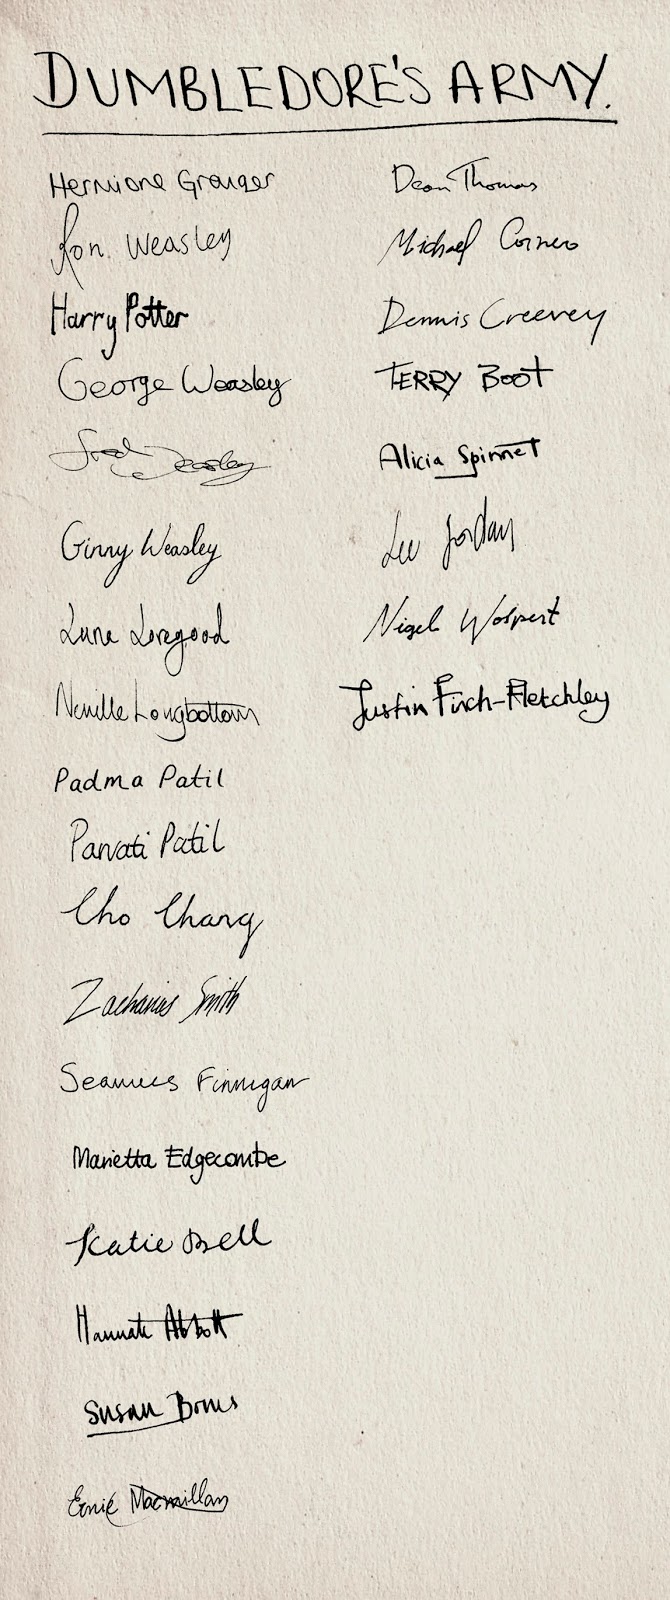 DUMBLEDORE'S ARMY.
Hermione Granger
Ron Weasley
Harry Potter
George Weasley
Fred Weasley
Ginny Weasley
Luna Lovegood
Neville Longbottom
Padma Patil
Parvati Patil
Cho Chang
Zacharias Smith
Seamus Finnigan
Marietta Edgecombe
Katie Bell
Hannah Abbott
Susan Bones
Ernie Macmillan
Dean Thomas
Michael Corner
Dennis Creevey
TERRY BOOT
Alicia Spinnet
Lee Jordan
Nigel Wolpert
Justin Finch-Fletchley